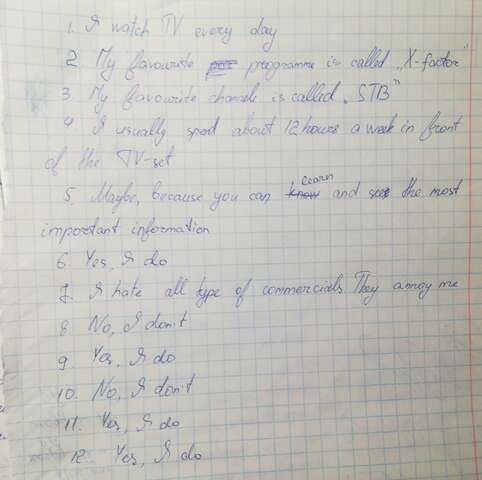 1. I watch TV every day
2. My favourite programme is called „X-factor"
3. My favourite channel is called „STB"
4. I usually spent about 12 hours a week in front
of the TV-set
5. Maybe, because you can learn and see the most
important information
6. Yes, I do
7. I hate all type of commercials They annoy me
8. No, I don't
9. Yes, I do
10. No, I don't
11. Yes, I do
12. Yes, I do